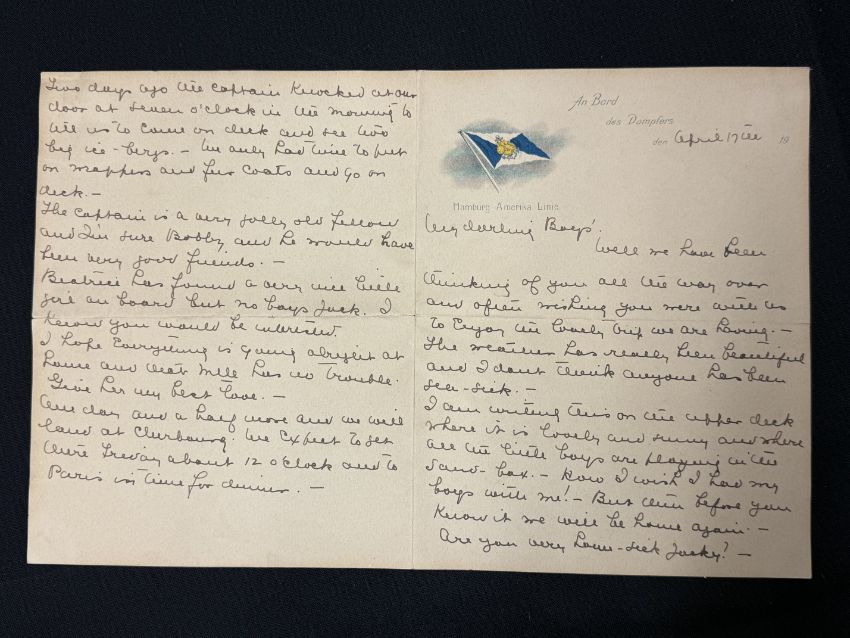 An Bord
des Dampfers
den April 17th 19
Hamburg-Amerika Linie.
My darling Boys'.
Well we have been
thinking of you all the way over
and often wishing you were with us
to enjoy the lovely trip we are having. —
The weather has really been beautiful
and I dont think anyone has been
sea-sick. —
I am writing this on the upper deck
where it is lovely and sunny and where
all the little boys are playing in the
sand-box. — How I wish I had my
boys with me! — But then before you
know it we will be home again. —
Are you very home-sick Jacky? —
Two days ago the captain knocked at our
door at seven o'clock in the morning to
tell us to come on deck and see two
big ice-bergs. — We only had time to put
on wrappers and fur coats and go on
deck. —
The captain is a very jolly old fellow
and I'm sure Bobby and he would have
been very good friends. —
Beatrice has found a very nice little
girl on board but no boys Jack. I
know you would be interested.
I hope everything is going alright at
home and that Mlle has no trouble.
Give her my best love. —
One day and a half more and we will
land at Cherbourg. We expect to get
there Friday about 12 o'clock and to
Paris in time for dinner. —